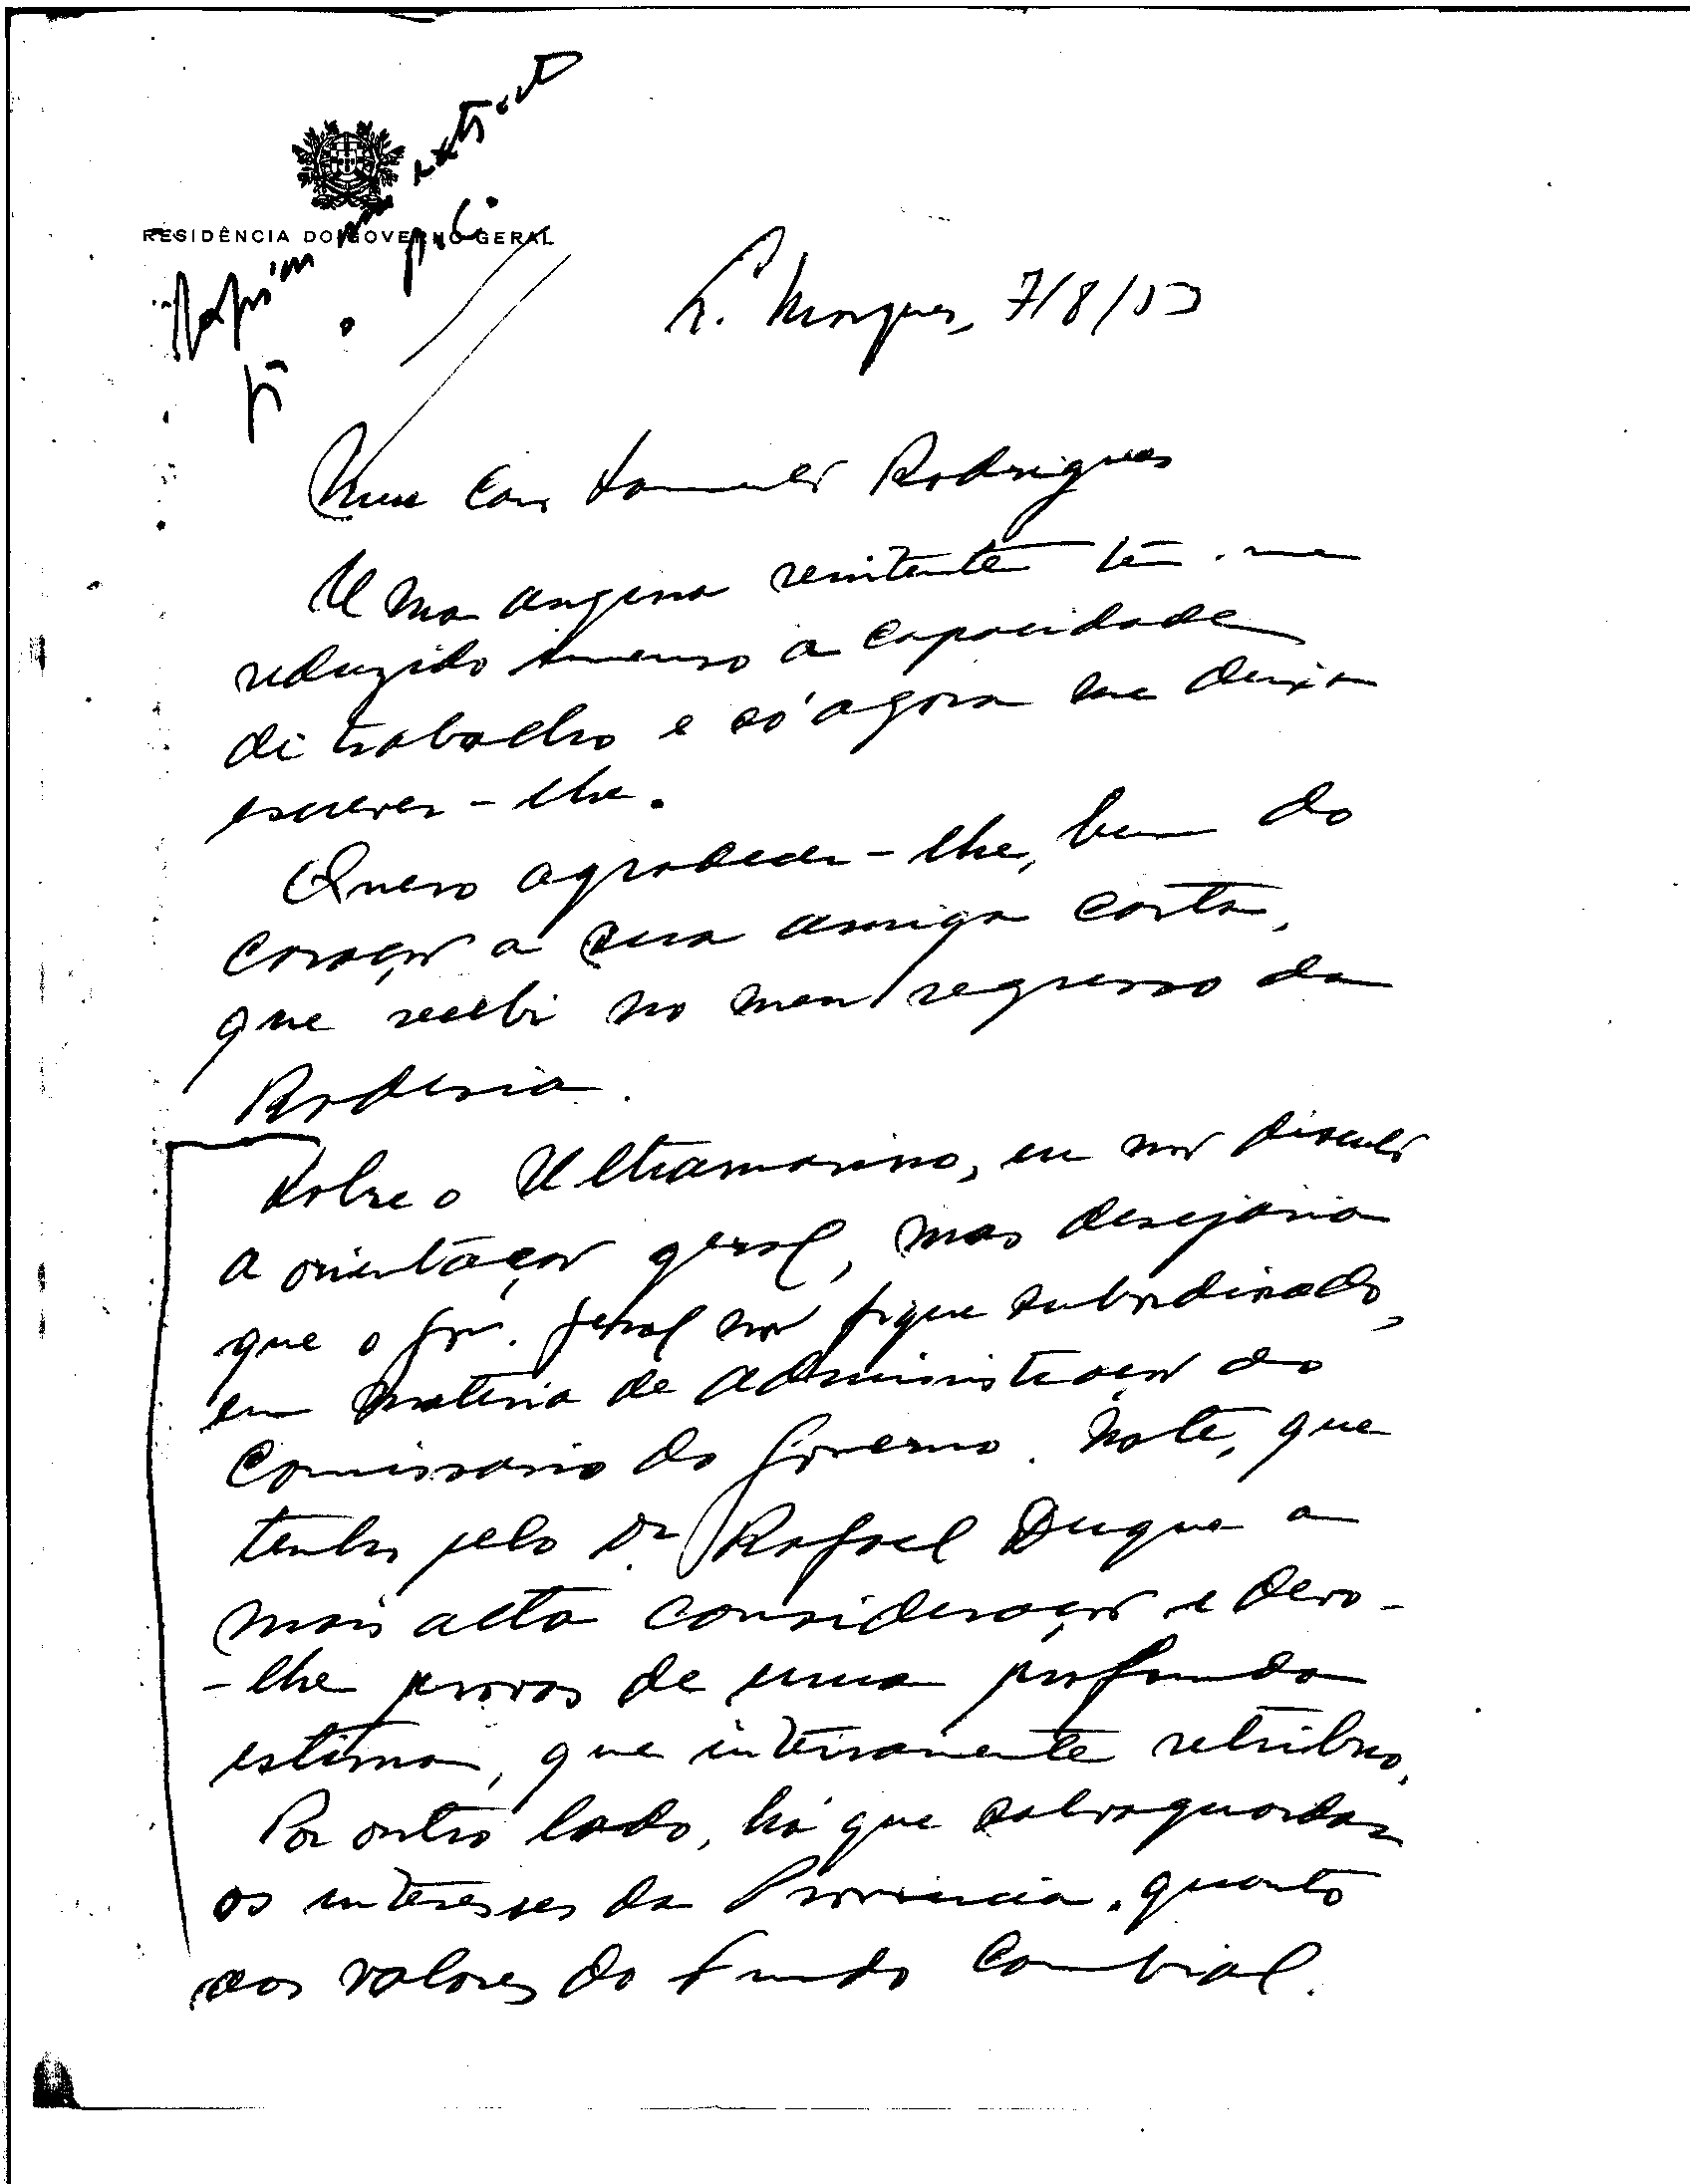 RESIDÊNCIA DO GOVERNO GERAL
L. Marques, 7/8/53
Meu Caro Sarmento Rodrigues
Uma angina renitente tem-me
reduzido imenso a capacidade
de trabalho e só agora me deixa
escrever-lhe.
Quero agradecer-lhe, bem do
coração a sua amiga carta,
que recebi no meu regresso da
Rodesia.
Sobre o Ultramarino, eu não discuto
a orientação geral, mas desejaria
que o Gov. Geral não fique subordinado,
em matéria de administração ao
Comissario do Governo. Note, que
tenho pelo Dr. Rafael Duque a
mais alta consideração e devo-
-lhe provas de uma profunda
estima, que inteiramente retribuo.
Por outro lado, há que salvaguardar
os interesses da Provincia, quanto
aos valores do Fundo Cambial.